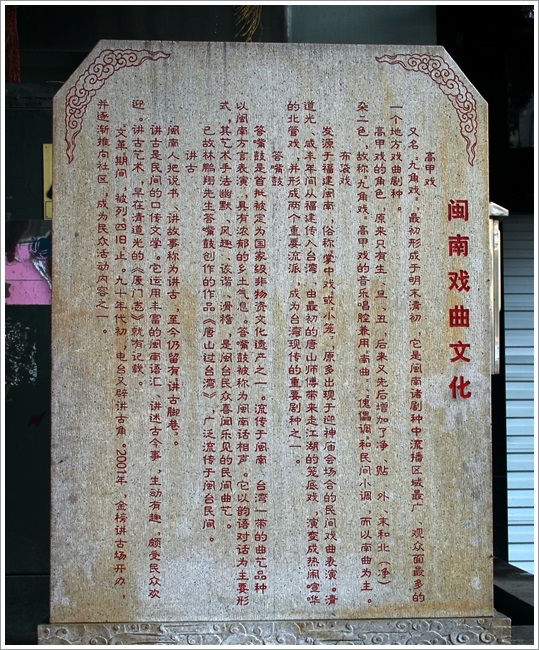 闽南戏曲文化
高甲戏
又名“九角戏”，最初形成于明末清初，它是闽南诸剧种中流播区域最广、观众面最多的
一个地方戏曲剧种。
高甲戏的角色，原来只有生、旦、丑，后来又先后增加了净、贴、外、末和北（净）
杂二色，故称“九角戏”。高甲戏的音乐唱腔兼用南曲、傀儡调和民间小调，而以南曲为主。
布袋戏
发源于福建闽南，俗称掌中戏或小笼，原多出现于迎神庙会场合的民间戏曲表演。清
道光、咸丰年间从福建传入台湾，由最初的唐山师傅带来走江湖的笼底戏，演变成热闹喧哗
的北管戏，并形成两个重要流派，成为台湾现传的重要剧种之一。
答嘴鼓
答嘴鼓是首批被定为国家级非物资文化遗产之一。流传于闽南、台湾一带的曲艺品种
以闽南方言表演，具有浓郁的乡土气息。答嘴鼓被称为闽南话相声。它以韵语对话为主要形
式，其艺术手法幽默、风趣、诙谐、滑稽，是闽台民众喜闻乐见的民间曲艺。
已故林鹏翔先生答嘴鼓创作的作品《唐山过台湾》，广泛流传于闽台民间。
讲古
闽南人把说书、讲故事称为讲古，至今仍留有“讲古脚巷”。
讲古是民间的口传文学。它运用丰富的闽南语汇，讲述古今事，主动有趣，颇受民众欢
迎。讲古艺术，早在清道光的《厦门志》就有记载。
文革期间，被列“四旧”止。九十年代初，电台又辟讲古角。2001年，金榜讲古场开办，
并逐渐推向社区，成为民众活动内容之一。